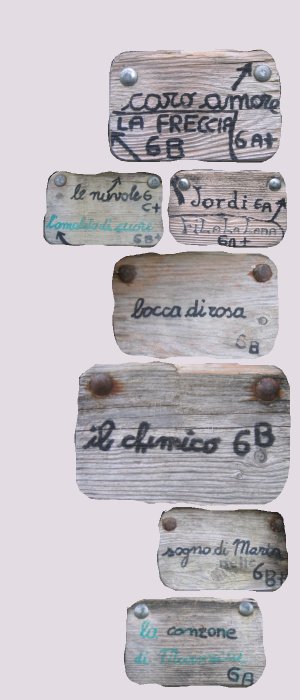 caro amore
LA FRECCIA
6B 6A+
le nuvole 6
C+
6B+
Jordi 6A
FILALALANA
6A+
bocca di rosa
6B
il chimico 6B
sogno di Maria
6B+
la canzone
di
6A